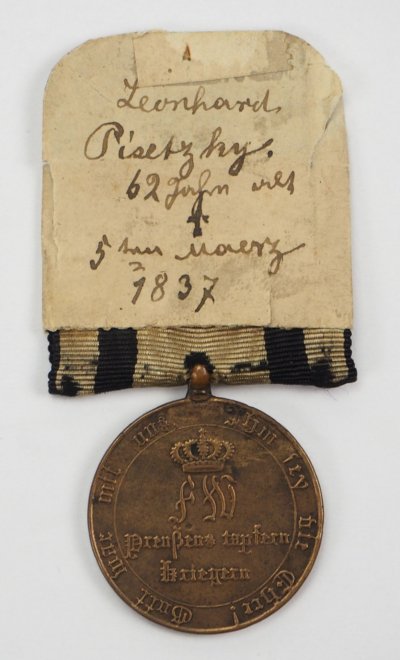 Leonhard
Pisetzky.
62 Jahr alt
†
5 ten Maerz
1837
Gott war mit uns Ihm sey die Ehre!
FW
Preußens tapfern
Kriegern